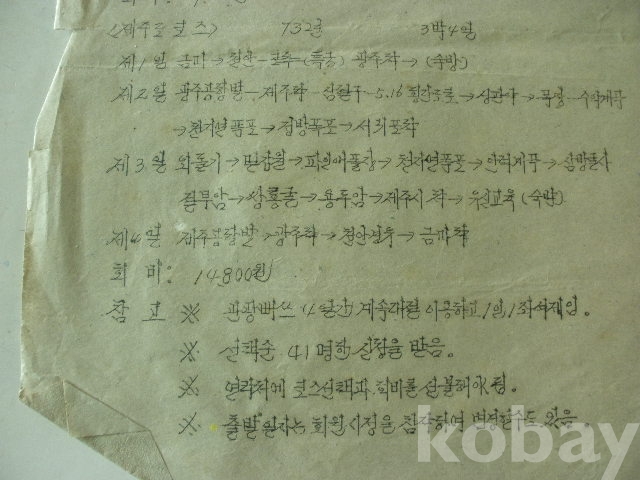 <제주도 코스> 732굴 3박4일
제1일 금마→천안→호두(특급) 광주착→(숙박)
제2일 광주공항발→제주착→삼현두→5.16횡단도로→성판악→목장→수악계곡
→천지연폭포→정방폭포→서귀포착
제3일 외돌기→민감원→파인애플장→천지연폭포→안덕계곡→삼방굴사
절부암→쌍룡굴→용두암→제주시착→유원교육(숙박)
제4일 제주공항발→광주착→천안전주→금마착
회비: 14,800원
참고 ※ 관광뻐쓰 (4일간) 계속대절 이용하고 1인, 1좌석제임.
※ 선착순 41명한 신청을 받음.
※ 연락처에 코스선택과 회비를 선불해야 됨.
※ 출발일자는 회원사정을 참작하여 변경할수도 있음
kobay